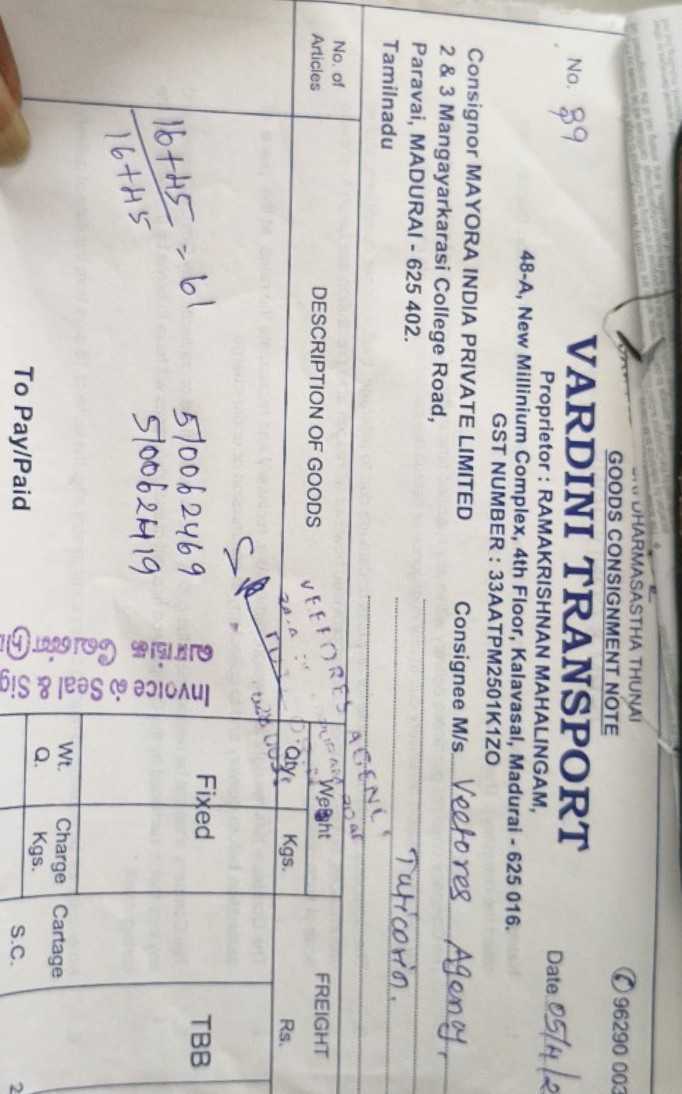 DHARMASASTHA THUNAI
GOODS CONSIGNMENT NOTE
✆ 96290 003
No. 89
VARDINI TRANSPORT
Proprietor : RAMAKRISHNAN MAHALINGAM,
48-A, New Millinium Complex, 4th Floor, Kalavasal, Madurai - 625 016.
GST NUMBER : 33AATPM2501K1ZO
Date 05/4/2
Consignor MAYORA INDIA PRIVATE LIMITED
2 & 3 Mangayarkarasi College Road,
Paravai, MADURAI - 625 402.
Tamilnadu
Consignee M/s. Veetores Agency,
Tuticorin.
No. of Articles
DESCRIPTION OF GOODS
Weight
Qty.
Kgs.
FREIGHT
Rs.
VEETORES AGENC
16+45 = 61
16+45
510062469
510062419
Fixed
TBB
Invoice ல் Seal & Sig
வாங்க வேண்டு
To Pay/Paid
Wt. Q.
Charge Kgs.
Cartage
S.C.
2